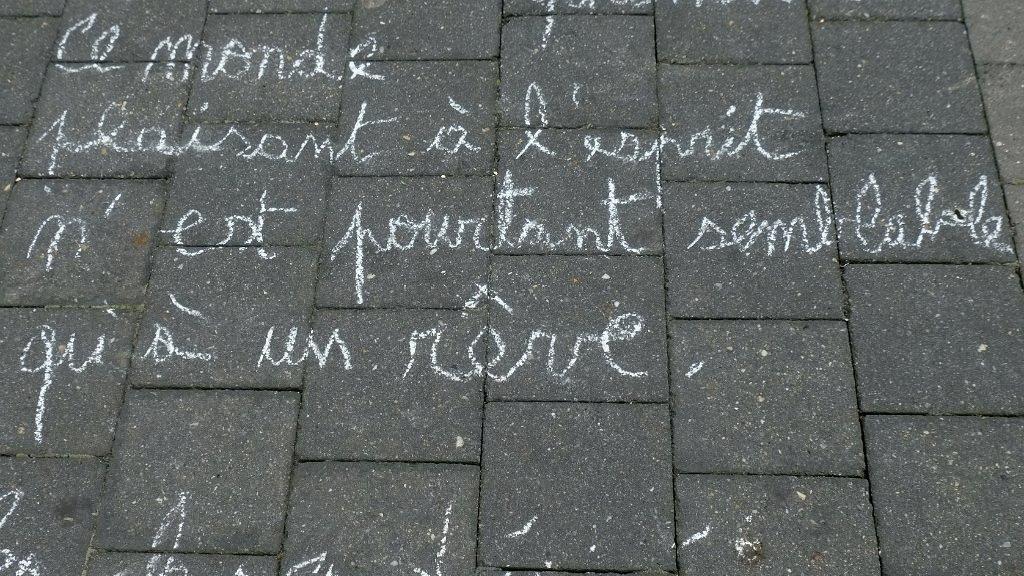 Le monde
plaisant à l'esprit
n'est pourtant semblable
qu'à un rêve,